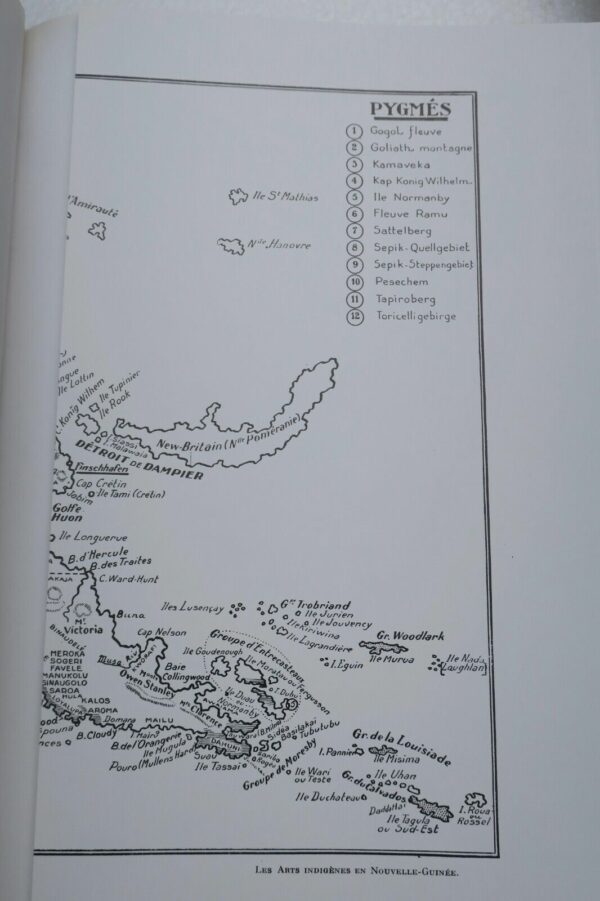 PYGMÉS
1 Gogol, fleuve
2 Goliath, montagne
3 Kamaveka
4 Kap Konig Wilhelm
5 Ile Normanby
6 Fleuve Ramu
7 Sattelberg
8 Sepik-Quellgebiet
9 Sepik-Steppengebiet
10 Pesechem
11 Tapiroberg
12 Toricelligebirge
Ile St Mathias
d'Amirauté
Nlle Hanovre
Ile Lottin
C. Konig Wilhem
Ile Tupinier
Ile Rook
I. Siassi
I. Malawaia
New-Britain (Nlle Poméranie)
DÉTROIT DE DAMPIER
Finschhafen
Cap Crétin
Jabim
Ile Tami (Crétin)
Golfe
Huon
Ile Longuerue
B. d'Hercule
B. des Traites
C. Ward-Hunt
Buna
Mt
Victoria
Cap Nelson
Musa
Baie
Collingwood
Owen Stanley
Iles Lusençay
Gpe Trobriand
Ile Jurien
Ile Jouvency
Ile Kiriwina
Ile Lagrandière
Groupe d'Entrecasteaux
Ile Goudenough
Ile Moratau ou Fergusson
Ile Duau ou
Normanby
I. Dubu
I. Eguin
Gr. Woodlark
Ile Murua
Ile Nada
(Laughlan)
MEROKA
SOGERI
FAVELE
MANUKOLU
SINAUGOLO
SAROA
HULA
KALOS
AROMA
Domara
MAILU
B. Cloudy
B. de l'Orangerie
Ile Mugula
Pouro (Mullens Hard)
Mts Clarence
DAHUNI
Suau
Ile Tassai
Basilakai
Tubutubu
Groupe de Moresby
Ile Wari
ou Teste
I. Pannier
Gr. de la Louisiade
Ile Misima
Ile Uhan
Gr. du Calvados
Ile Duchateau
Ile Tagula
ou Sud-Est
I. Roua
ou Rossel
Les Arts indigènes en Nouvelle-Guinée.